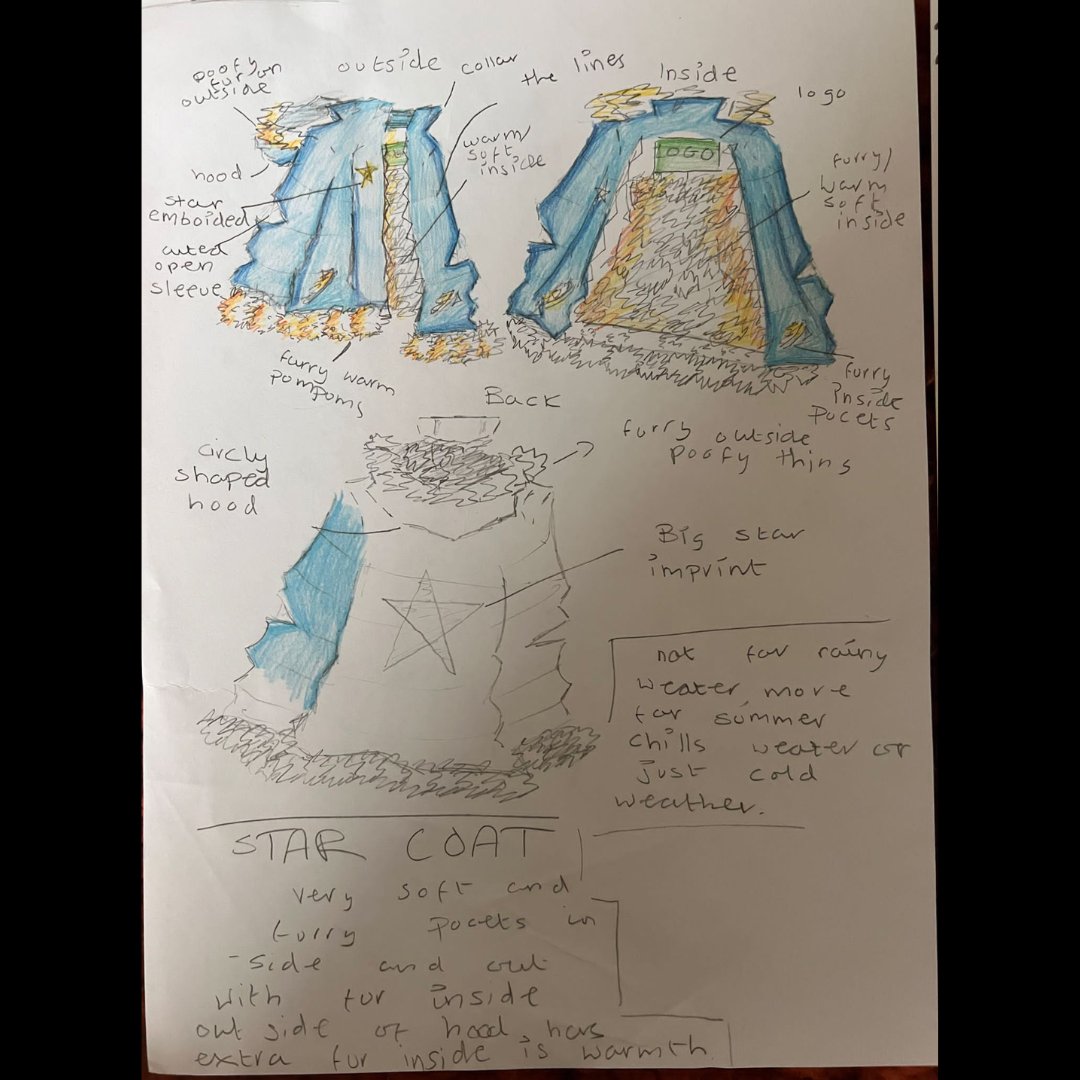 outside
collar
the lines
Inside
logo
poofy
fur on
outside
hood
star
emboided
cuted
open
sleeve
warm/
soft
inside
OGO
furry/
warm
soft
inside
furry warm
pompoms
furry
inside
pocets
Back
circly
shaped
hood
furry outside
poofy thins
Big star
imprint
not for rainy
weater, more
for summer
chills weater or
just cold
weather.
STAR COAT
very soft and
furry pocets in
-side and out
with fur inside
out side of hood, has
extra fur inside is warmth